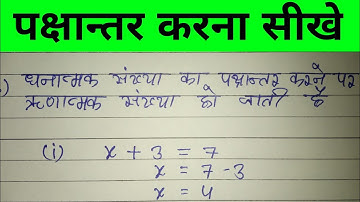 पक्षान्तर करना सीखे
) धनात्मक संख्या का पक्षान्तर करने पर
ऋणात्मक संख्या हो जाती है
(i) x + 3 = 7
x = 7 - 3
x = 4